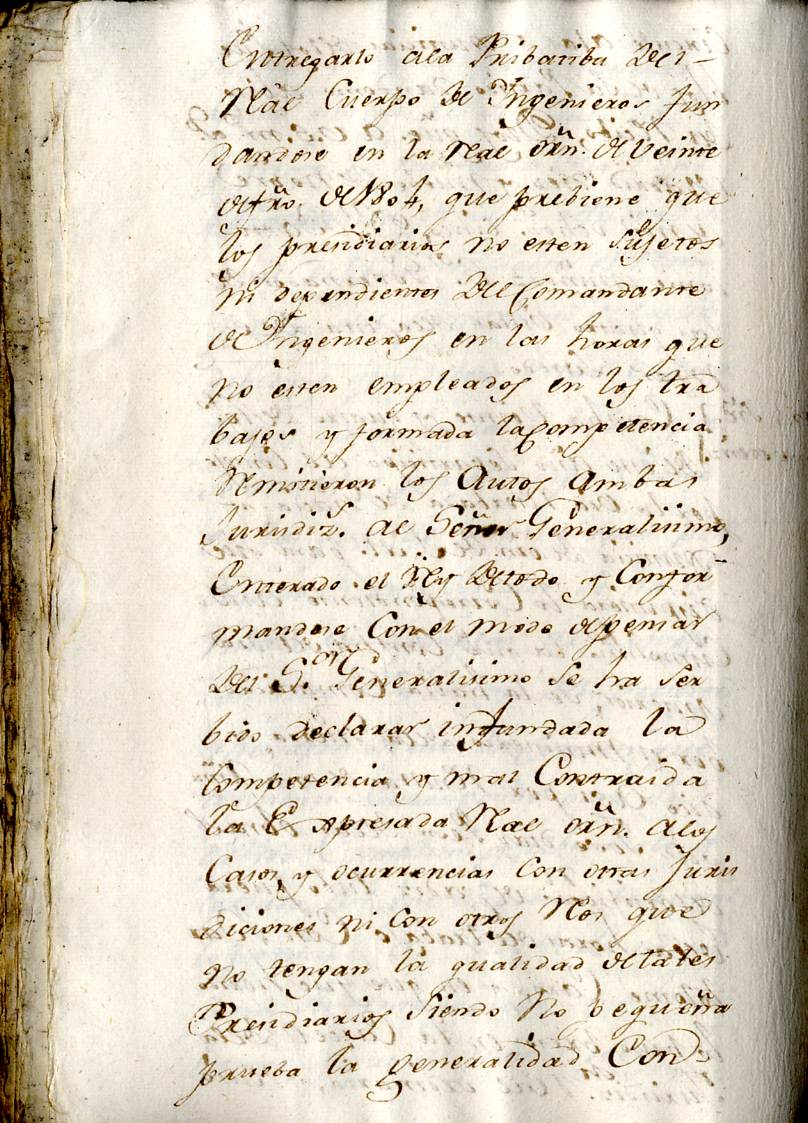 Entregarlo ala Pribatiba del
Râl Cuerpo de Ingenieros fun
dandose en la Ral orñ. de veinte
de fro. de 1804, que prebiene que
los presidiarios no esten sujetos
ni dependientes del Comandante
de Ingenieros en las horas que
no esten empleados en los tra
bajos y formada la Competencia
Remitieron los Autos ambas
Jurisdiz.s al Señor Generalisimo,
Enterado el Rey de todo y Confor
mandose Con el modo de pensar
del S.or Generalisimo se ha ser
bido declarar infundada la
Competencia y mal Contraida
la Expresada Ral orñ. alos
Casos y ocurrencias con otras Juris
diciones ni con otros Reos que
no tengan la qualidad de tales
Presidiarios siendo no pequeña
prueba la generalidad Con-